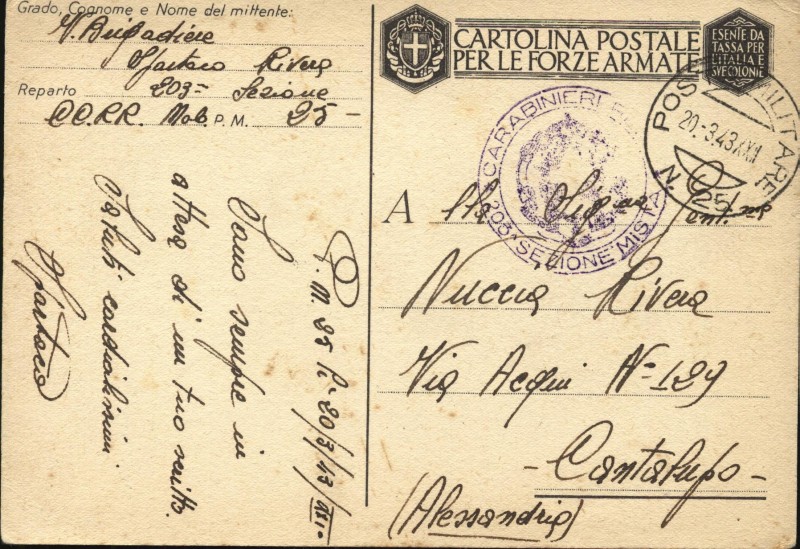 Grado, Cognome e Nome del mittente:
V. Brigadiere
Rivera
Reparto 203= Sezione
CC.RR. Mob. P. M. 25-
CARTOLINA POSTALE
PER LE FORZE ARMATE
ESENTE DA
TASSA PER
L'ITALIA E
SVE COLONIE
POSTA MILITARE
20.-3.43.XXI
N. 25
CARABINIERI
203ª SEZIONE MISTA
A lla Sig.na
Nuccia Rivera
Via Acqui N= 129
- Cantalupo -
(Alessandria)
P.M. 25 li 20/3/43/XXIº
Sono sempre in
attesa di un tuo scritto.
Saluti cordialissimi